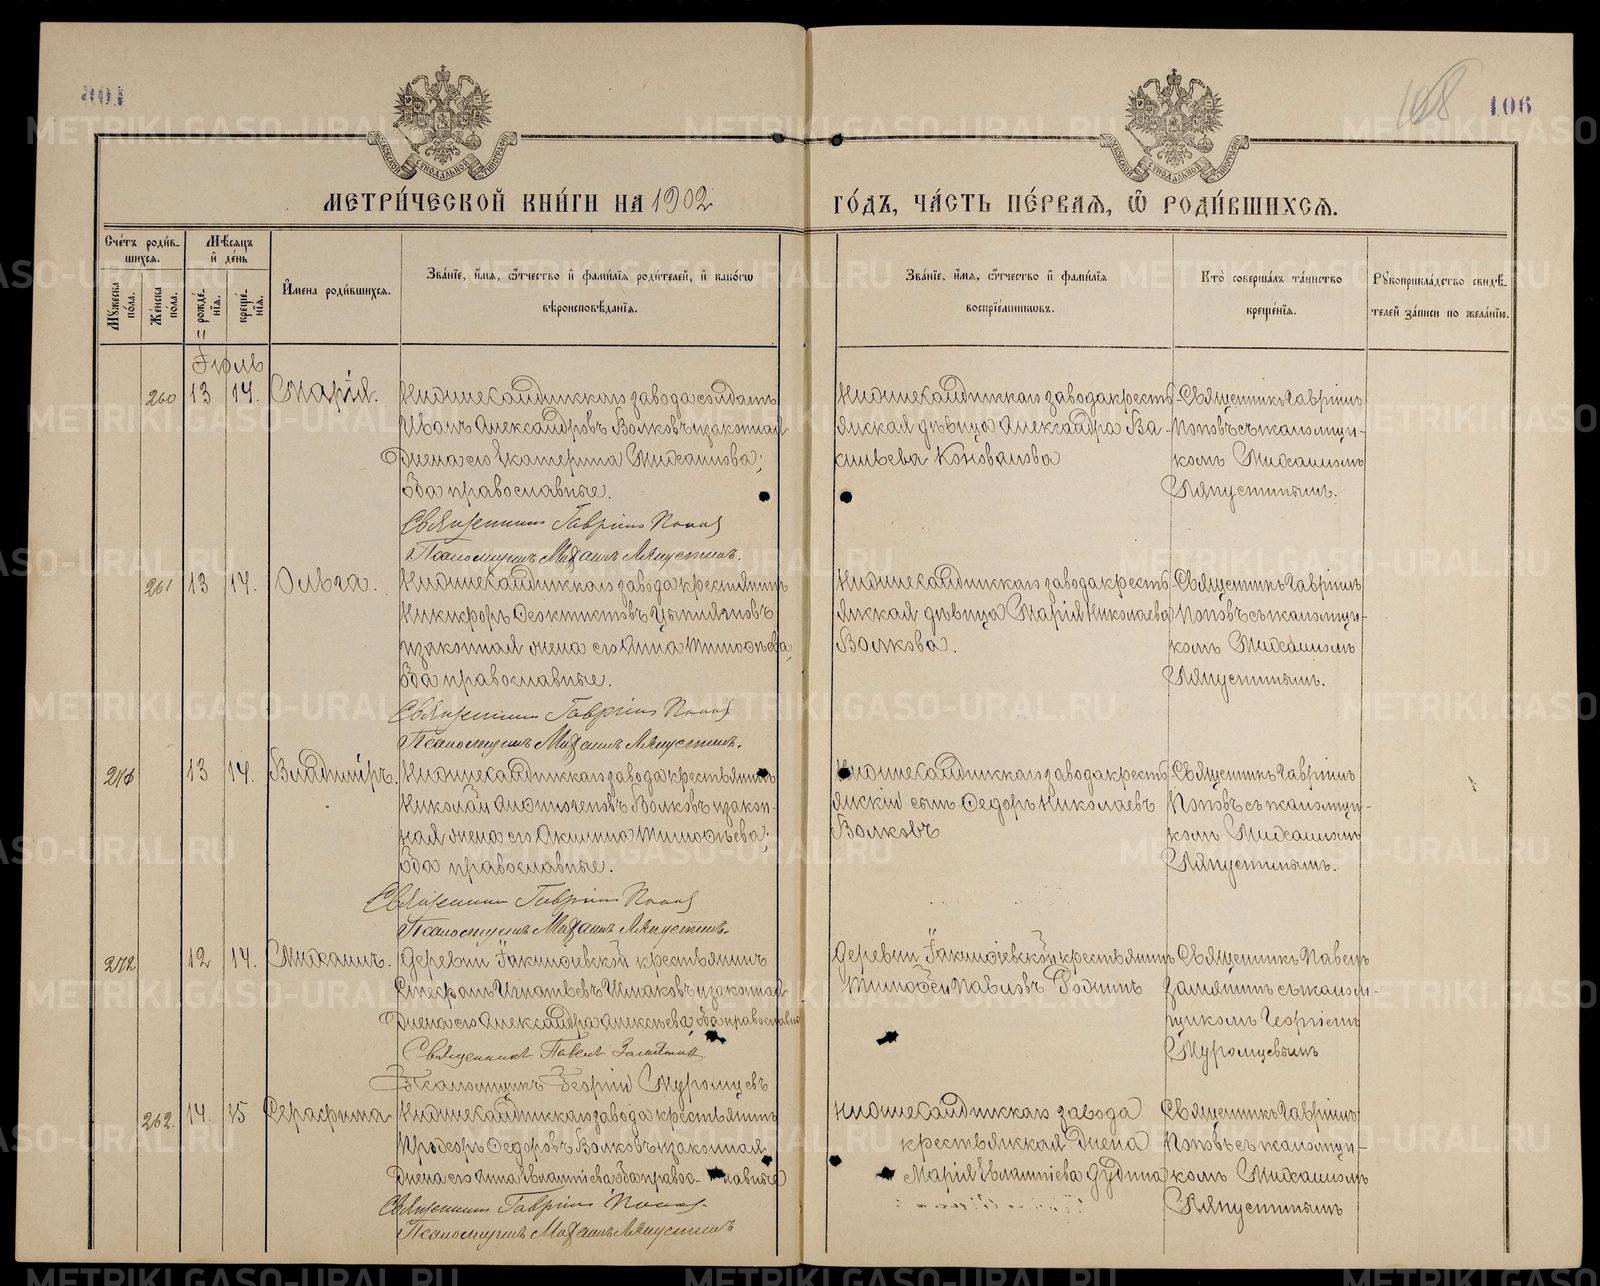 108
106
МОСКОВСКОЙ СѴНОДАЛЬНОЙ ТИПОГРАФІИ
МОСКОВСКОЙ СѴНОДАЛЬНОЙ ТИПОГРАФІИ
МЕТРИ́ЧЕСКОЙ КНИ́ГИ НА 1902
ГО́ДЪ, ЧА́СТЬ ПЕ́РВАѦ, Ѡ҆ РОДИ́ВШИХСѦ.
Сче́тъ роди́вшихсѧ.
Мꙋ́жеска по́ла.
Же́нска по́ла.
Мѣ́сѧцъ и҆ де́нь
рожде́нїѧ.
креще́нїѧ.
И҆мена роди́вшихсѧ.
Зва́нїе, и҆́мѧ, ѻ҆́тчество и҆ фами́лїѧ роди́телей, и҆ како́гѡ
вѣроисповѣ́данїѧ.
Зва́нїе, и҆́мѧ, ѻ҆́тчество и҆ фами́лїѧ
воспрїе́мникѡвъ.
Кто̀ соверша́лъ та́инство
креще́нїѧ.
Рꙋкоприкла́дство свидѣ́-
телей за́писи по жела́нїю.
Іюль
260 13 14. Марія.
Нижнесалдинскаго завода солдатъ
Иванъ Александровъ Волковъ и законная
жена его Екатерина Михаилова;
оба православные.
Священникъ Гавріилъ Поповъ
Псаломщикъ Михаилъ Ляпустинъ.
Нижнесалдинскаго завода кресть
янская дѣвица Александра Ва-
сильева Коновалова
Священникъ Гавріилъ
Поповъ съ псаломщи-
комъ Михаиломъ
Ляпустинымъ.
261 13 14. Ольга.
Нижнесалдинскаго завода крестьянинъ
Никифоръ Феоктистовъ
и законная жена его Анна Тимофѣева,
оба православные.
Священникъ Гавріилъ Поповъ
Псаломщикъ Михаилъ Ляпустинъ.
Нижнесалдинскаго завода кресть
янская дѣвица Марія Николаева
Волкова.
Священникъ Гавріилъ
Поповъ съ псаломщи-
комъ Михаиломъ
Ляпустинымъ.
13 14. Владиміръ.
Нижнесалдинскаго завода крестьянинъ
Николай Анфиногеновъ Волковъ и закон-
ная жена его Акилина Тимофѣева;
оба православные.
Священникъ Гавріилъ Поповъ
Псаломщикъ Михаилъ Ляпустинъ.
Нижнесалдинскаго завода кресть
янскій сынъ Федоръ Николаевъ
Волковъ
Священникъ Гавріилъ
Поповъ съ псаломщи-
комъ Михаиломъ
Ляпустинымъ.
272 12 14. Михаилъ.
Деревни Іакинѳіевской крестьянинъ
Стефанъ Игнатьевъ Шмаковъ и законная
жена его Александра Алексѣева, оба православные
Священникъ Павелъ Замятинъ
Псаломщикъ Георгій Муромцевъ
Деревни Іакинѳіевской крестьянинъ
Тимофей Павловъ Родинъ
Священникъ Павелъ
Замятинъ съ псалом-
щикомъ Георгіемъ
Муромцевымъ
262. 14. 15 Серафима
Нижнесалдинскаго завода крестьянинъ
Прохоръ Федоровъ Волковъ и законная
жена его Анна Евлампіева, оба православные
Священникъ Гавріилъ Поповъ.
Псаломщикъ Михаилъ Ляпустинъ
Нижнесалдинскаго завода
крестьянская жена
Марія Евлампіева Дудина
Священникъ Гавріилъ
Поповъ съ псаломщи-
комъ Михаиломъ
Ляпустинымъ
METRIKI.GASO-URAL.RU